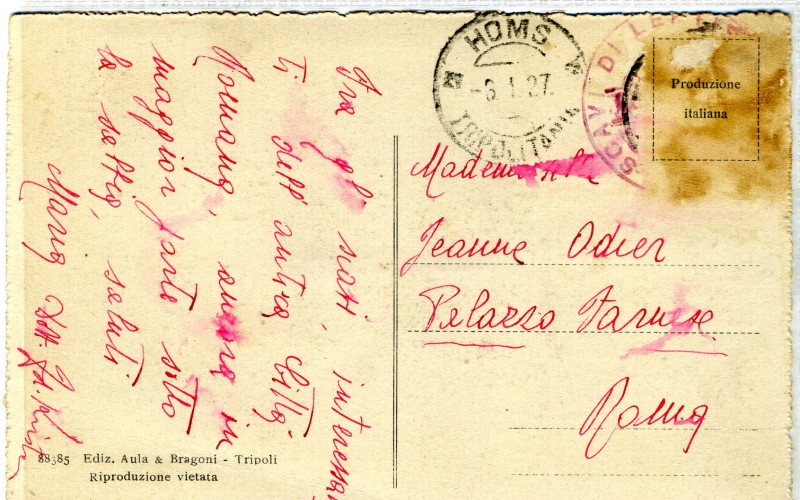 HOMS
-6.1.27.
TRIPOLITANIA
SCAVI DI LEPTIS
Produzione
italiana
Mademoiselle
Jeanne Odier
Palazzo Farnese
Roma
Fra gli scavi, interessan
ti dell'antica Città
Romana, ancora in
maggior parte sotto
la sabbia, saluti
Maria Dott.
88385 Ediz. Aula & Bragoni - Tripoli
Riproduzione vietata